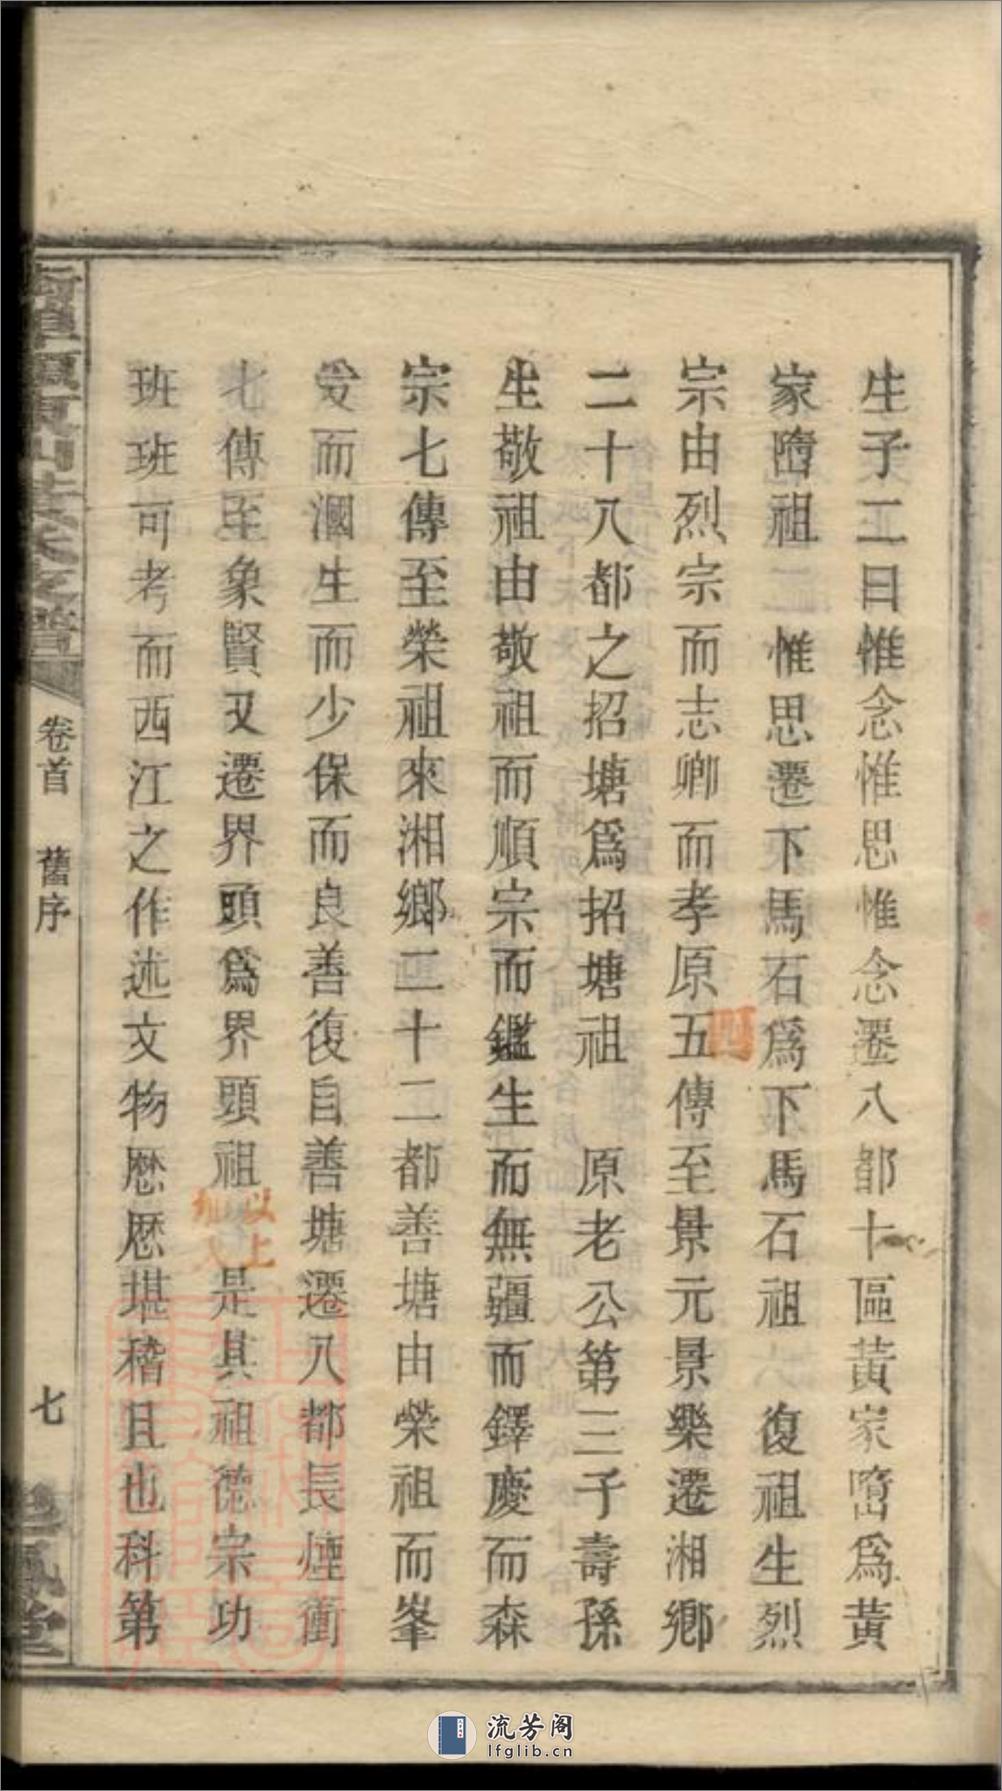 生子二曰惟念惟思惟念遷八都十區黃家㘯爲黃
家㘯祖 惟思遷下馬石爲下馬石祖 復祖生烈
宗由烈宗而志卿而孝原五傳至景元景樂遷湘鄉
四
二十八都之招塘爲招塘祖 原老公第三子壽孫
生敬祖由敬祖而順宗而鑑生而無疆而鐸慶而森
宗七傳至榮祖來湘鄉二十二都善塘由榮祖而峯
受而瀾生而少保而良善復自善塘遷八都長煙衝
七傳至象賢又遷界頭爲界頭祖 是其祖德宗功
以上
加入
班班可考而西江之作述文物歷歷堪稽且也科第
支譜
卷首 舊序
七
流芳阁
lfglib.cn